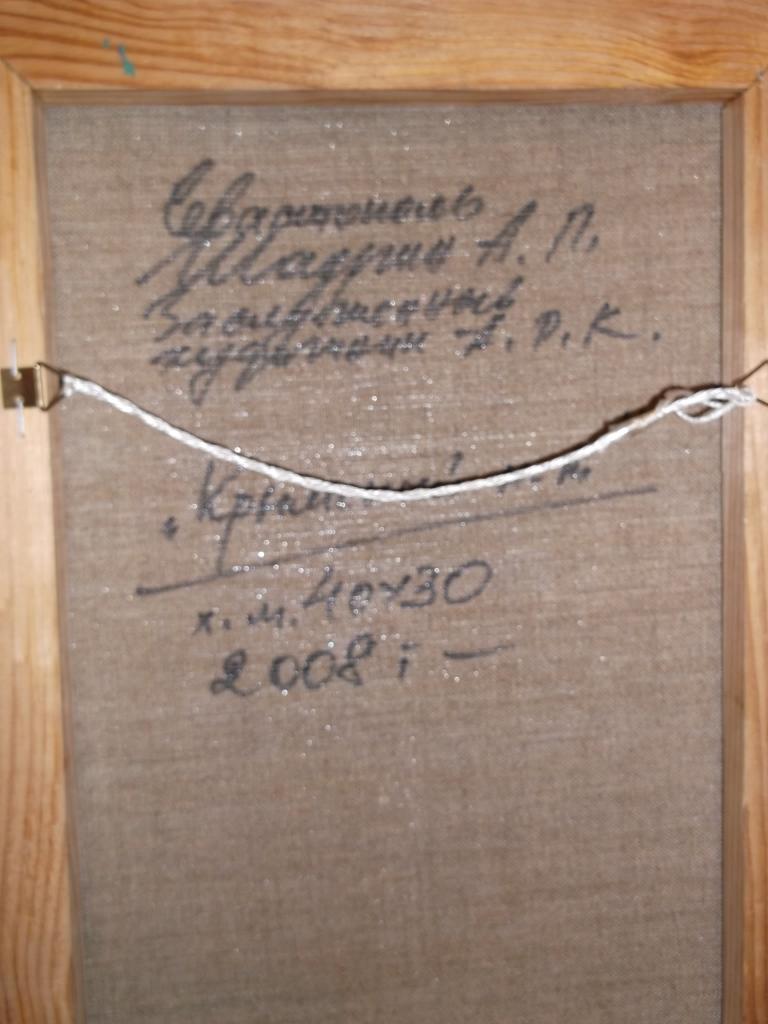 Севастополь
Шадрин А. П.
Заслуженный
художник А. Р. К.
"Крымский
х. м. 40х30
2008 г